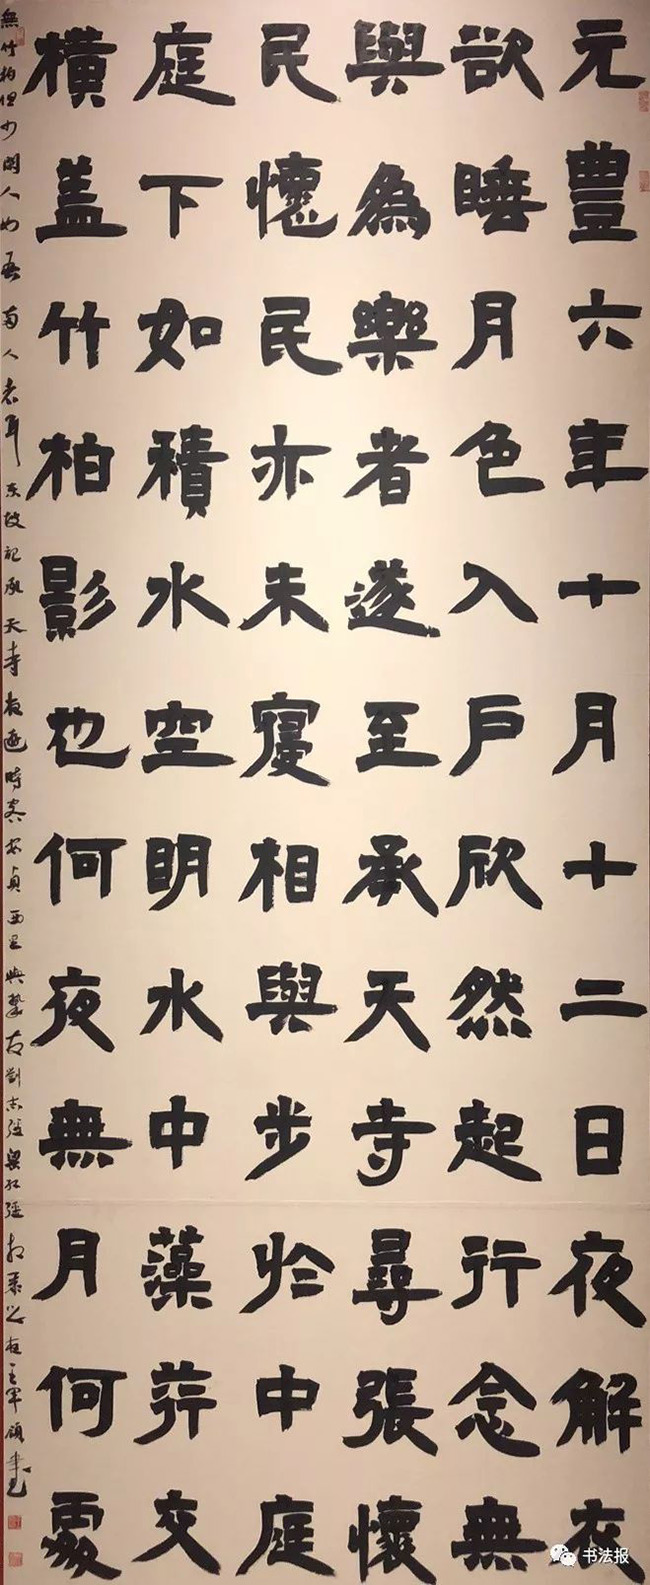 元豐六年十月十二日夜解衣
欲睡月色入戶欣然起行念無
與為樂者遂至承天寺尋張懷
民懷民亦未寢相與步於中庭
庭下如積水空明水中藻荇交
橫盖竹柏影也何夜無月何處
無竹柏但少閑人如吾兩人者耳 东坡記承天寺夜遊 時客安貞西里與摯友劉
书法报